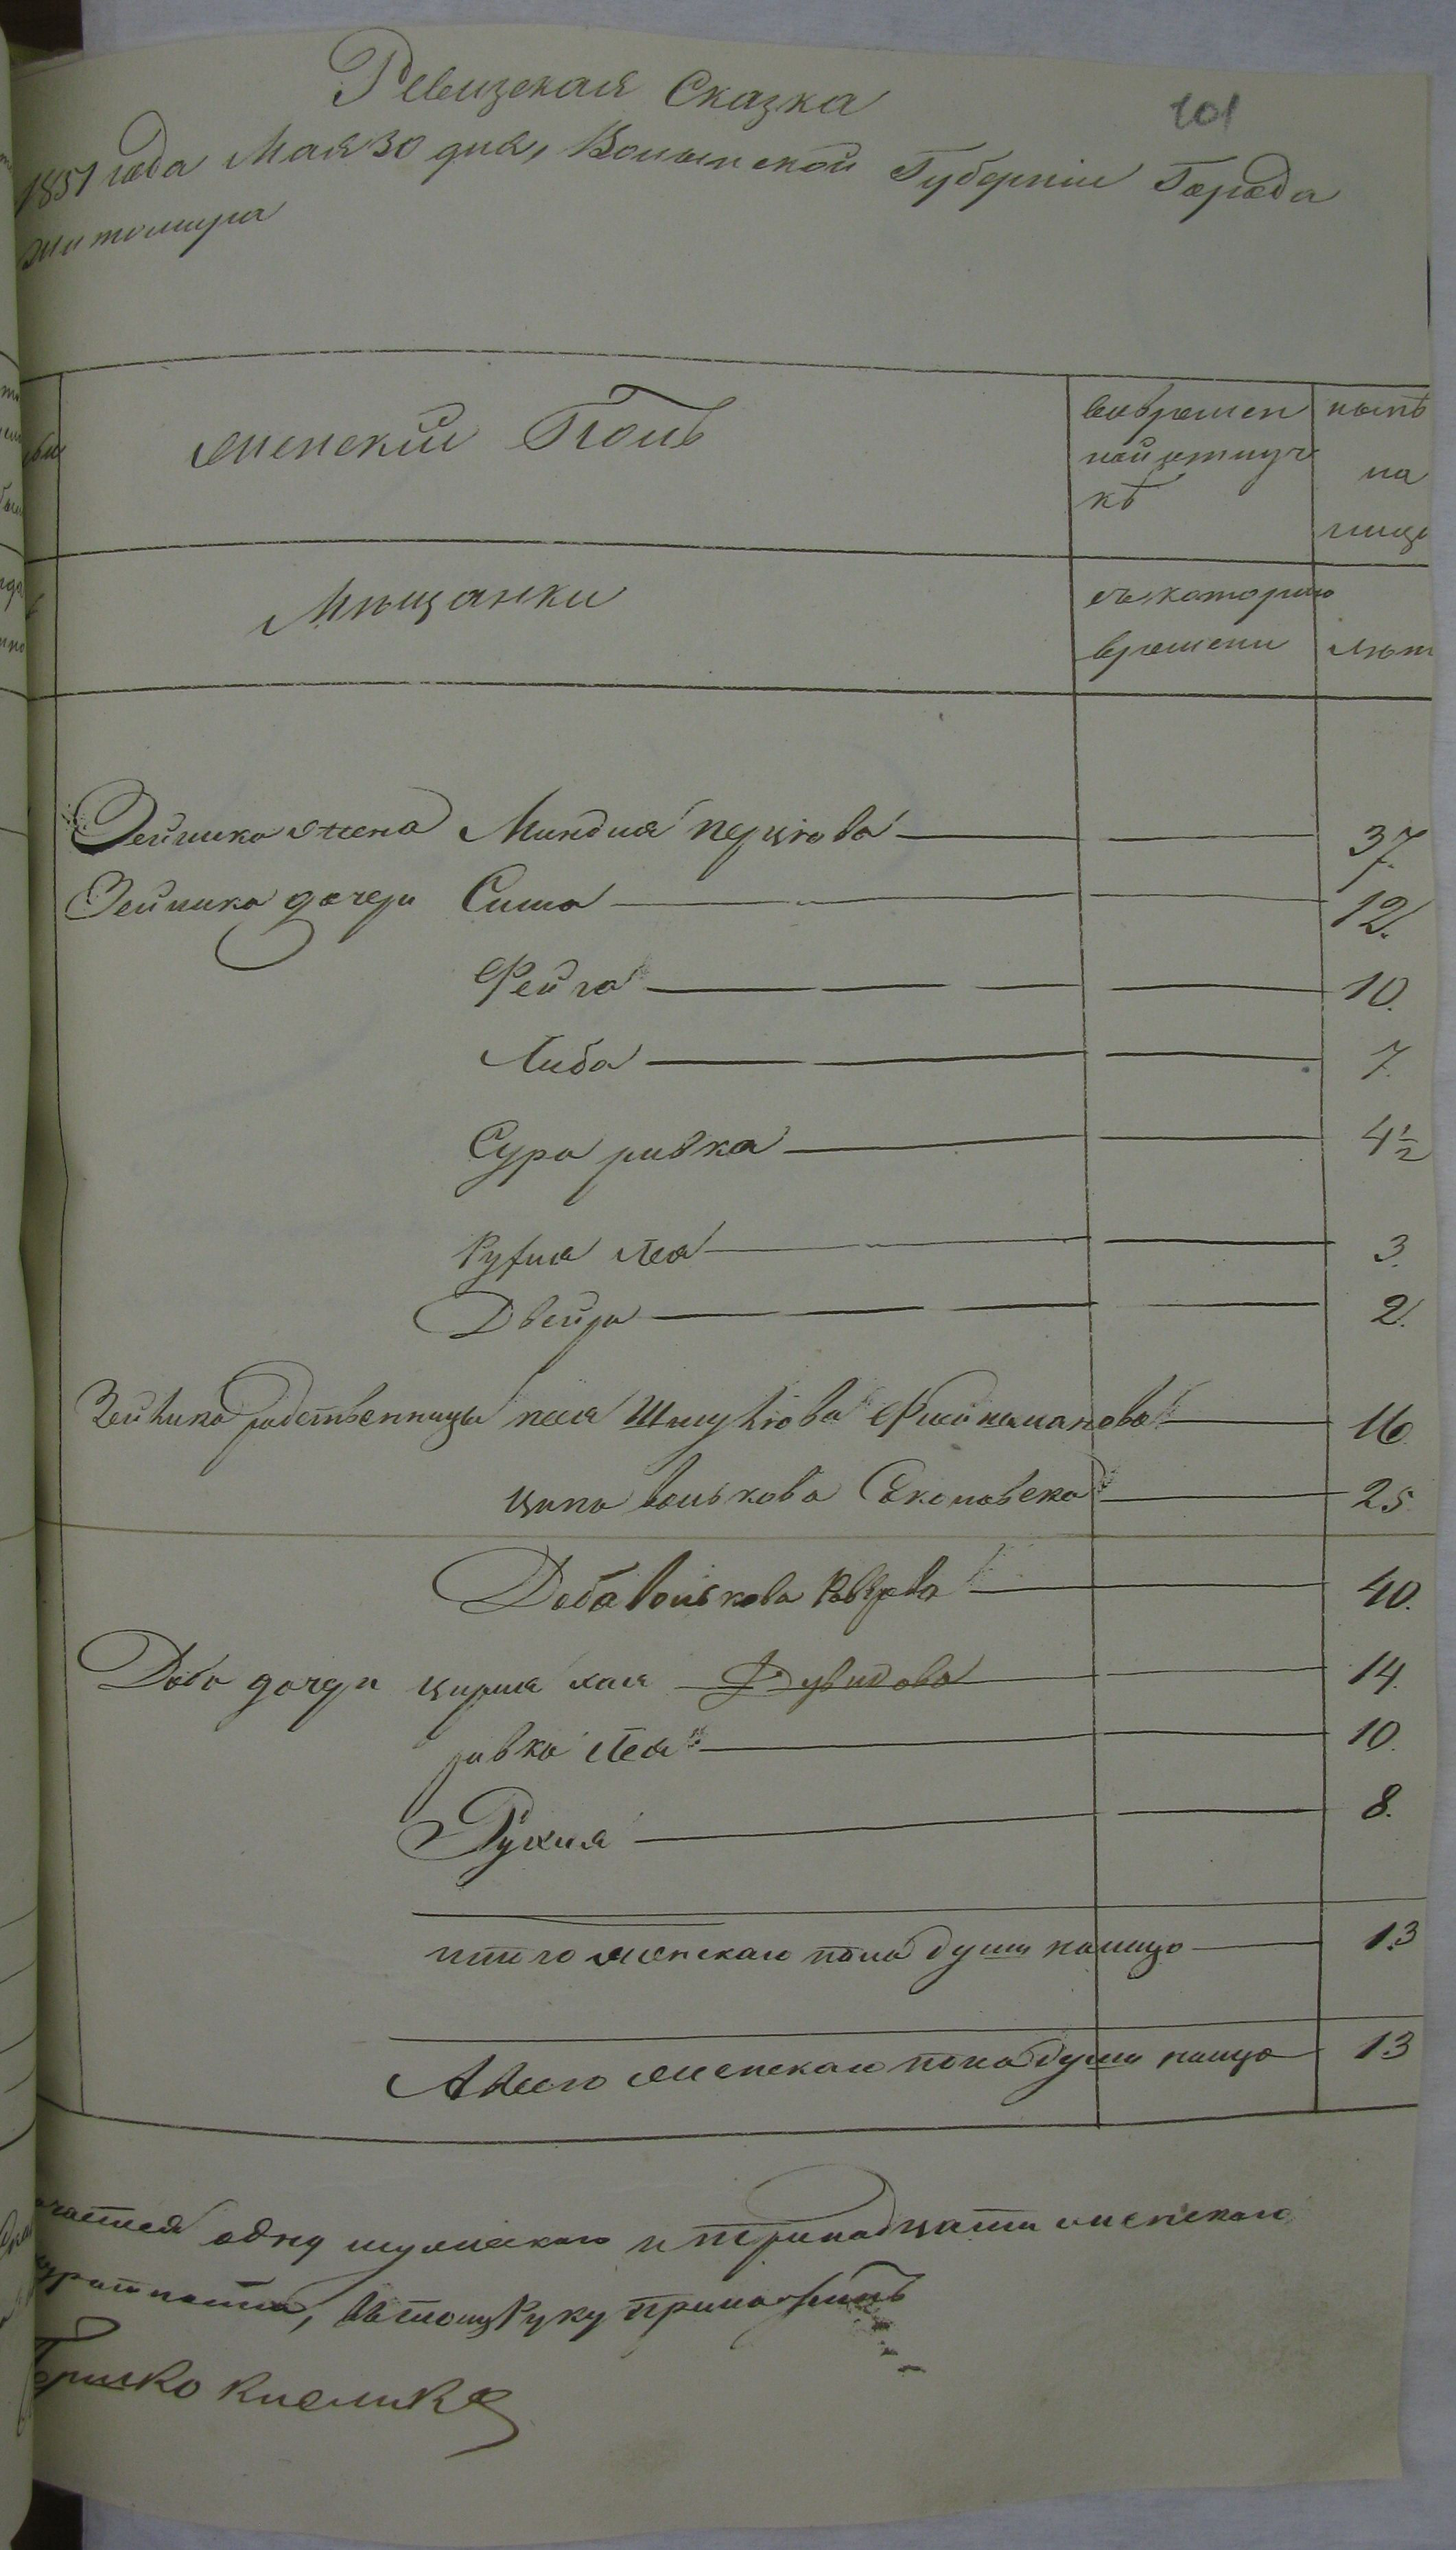 Ревизская Сказка
101
1851 года Мая 30 дня, Волынской Губернии Города
Житомира
женский Полъ
во времен
ной отлуч
кѣ
нынѣ
на
лицо
Мѣщанки
съ котораго
времени
лѣт
Зейлика жена Миндля Перцова 37.
Зейлика дочери Сима 12.
Фейга 10.
Либа 7.
Сура ривка 4½
Рухля Лея 3.
Двейра 2.
Зейлика родственницы песя Шмулiова 16
ципа волькова 25
Доба волькова 40.
Доба дочери цирля хая Дувидова 14.
ривка Лея 10.
Рухля 8.
итого женскаго пола душъ налицо 13
А всего женскаго пола душъ налицо 13
одну мужескаго и тринадцати женскаго
въ томъ Руку приложилъ